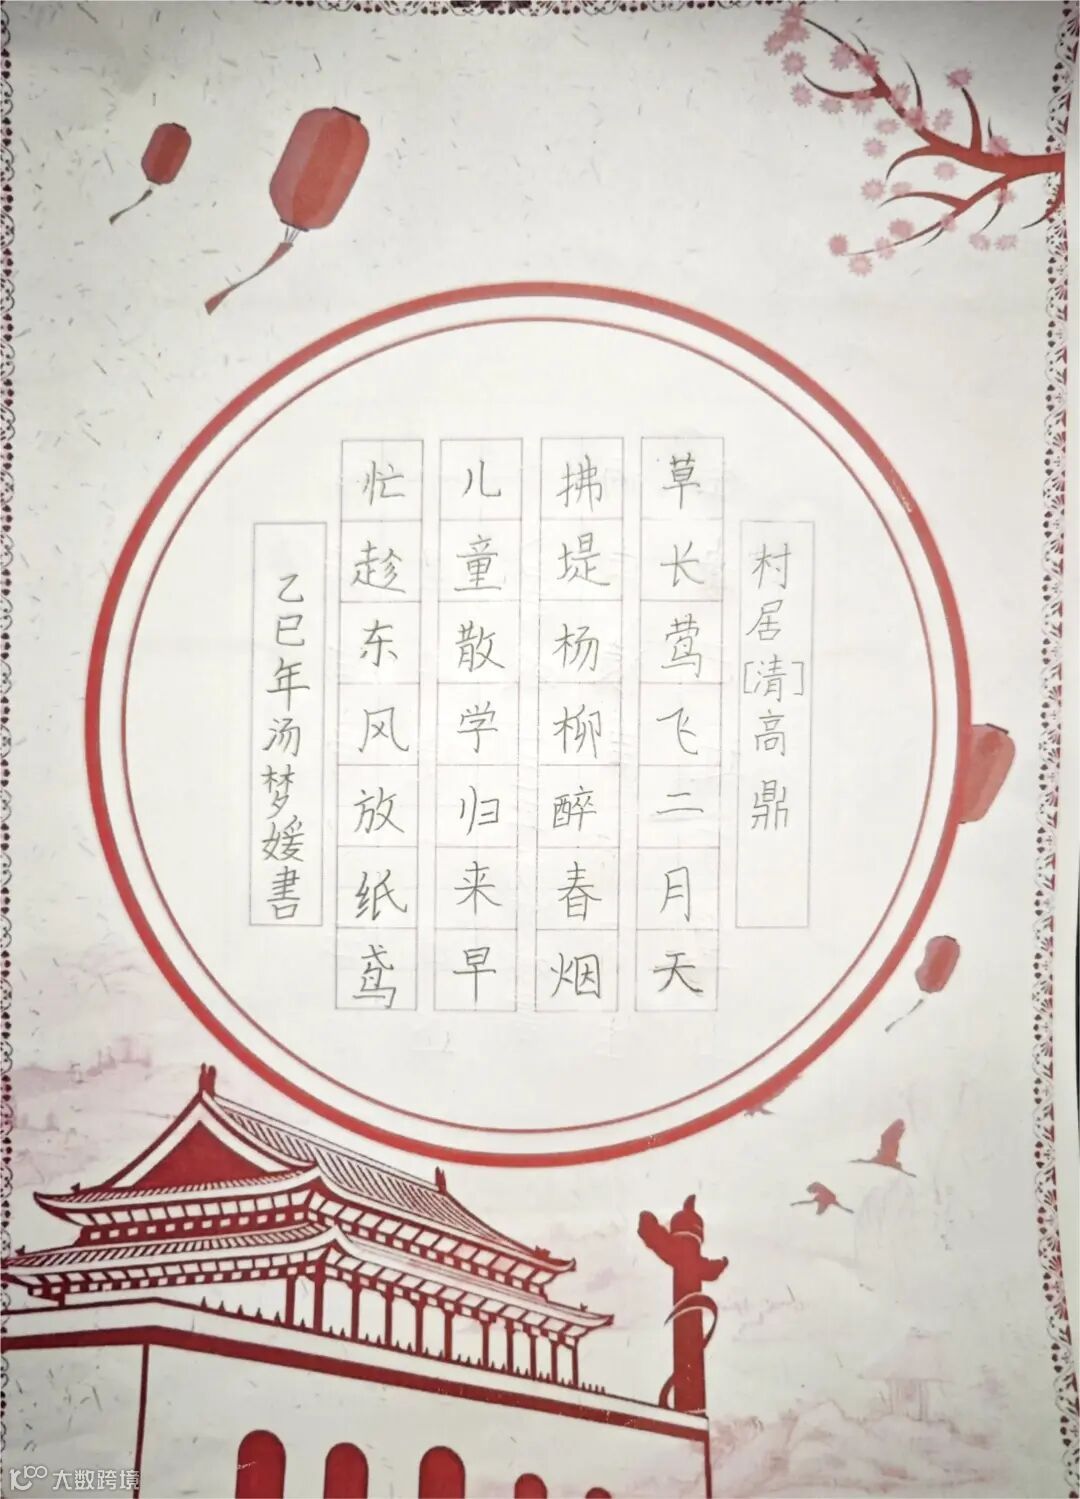 村居[清]高鼎
草长莺飞二月天
拂堤杨柳醉春烟
儿童散学归来早
忙趁东风放纸鸢
乙巳年汤梦媛書
大数跨境